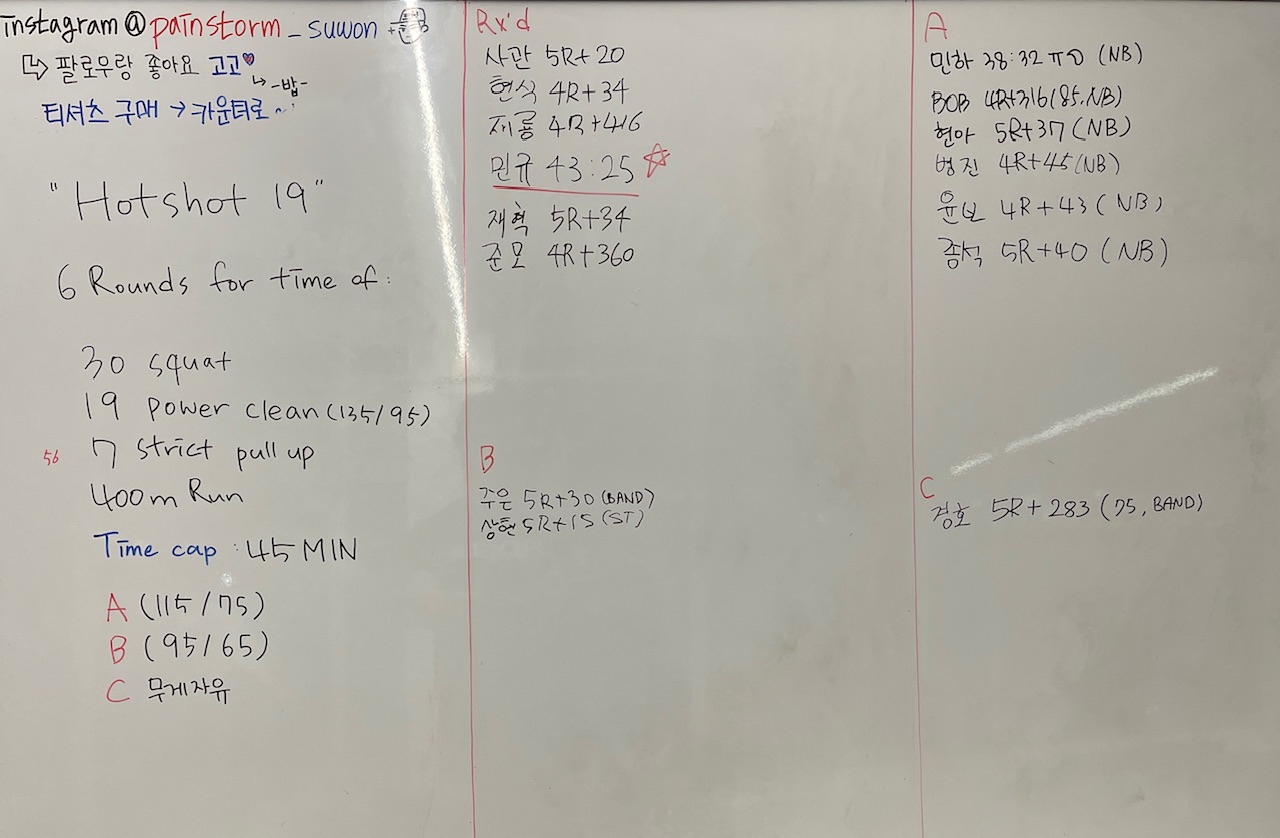 instagram@painstorm_suwon
팔로우랑 좋아요 고고♥
-밥-
티셔츠 구매 → 카운터로~
"Hotshot 19"
6 Rounds for time of:
30 squat
19 power clean (135/95)
56 7 strict pull up
400m Run
Time cap : 45 MIN
A (115/75)
B (95/65)
C 무게자유
Rx'd
사관 5R+20
현식 4R+34
재룡 4R+416
민규 43:25 ☆
재혁 5R+34
준모 4R+360
B
주은 5R+30 (BAND)
상현 5R+15 (ST)
A
민하 38:32 (NB)
BOB 4R+316 (85, NB)
현아 5R+37 (NB)
병진 4R+45 (NB)
윤보 4R+43 (NB)
종석 5R+40 (NB)
C
경호 5R+283 (75, BAND)